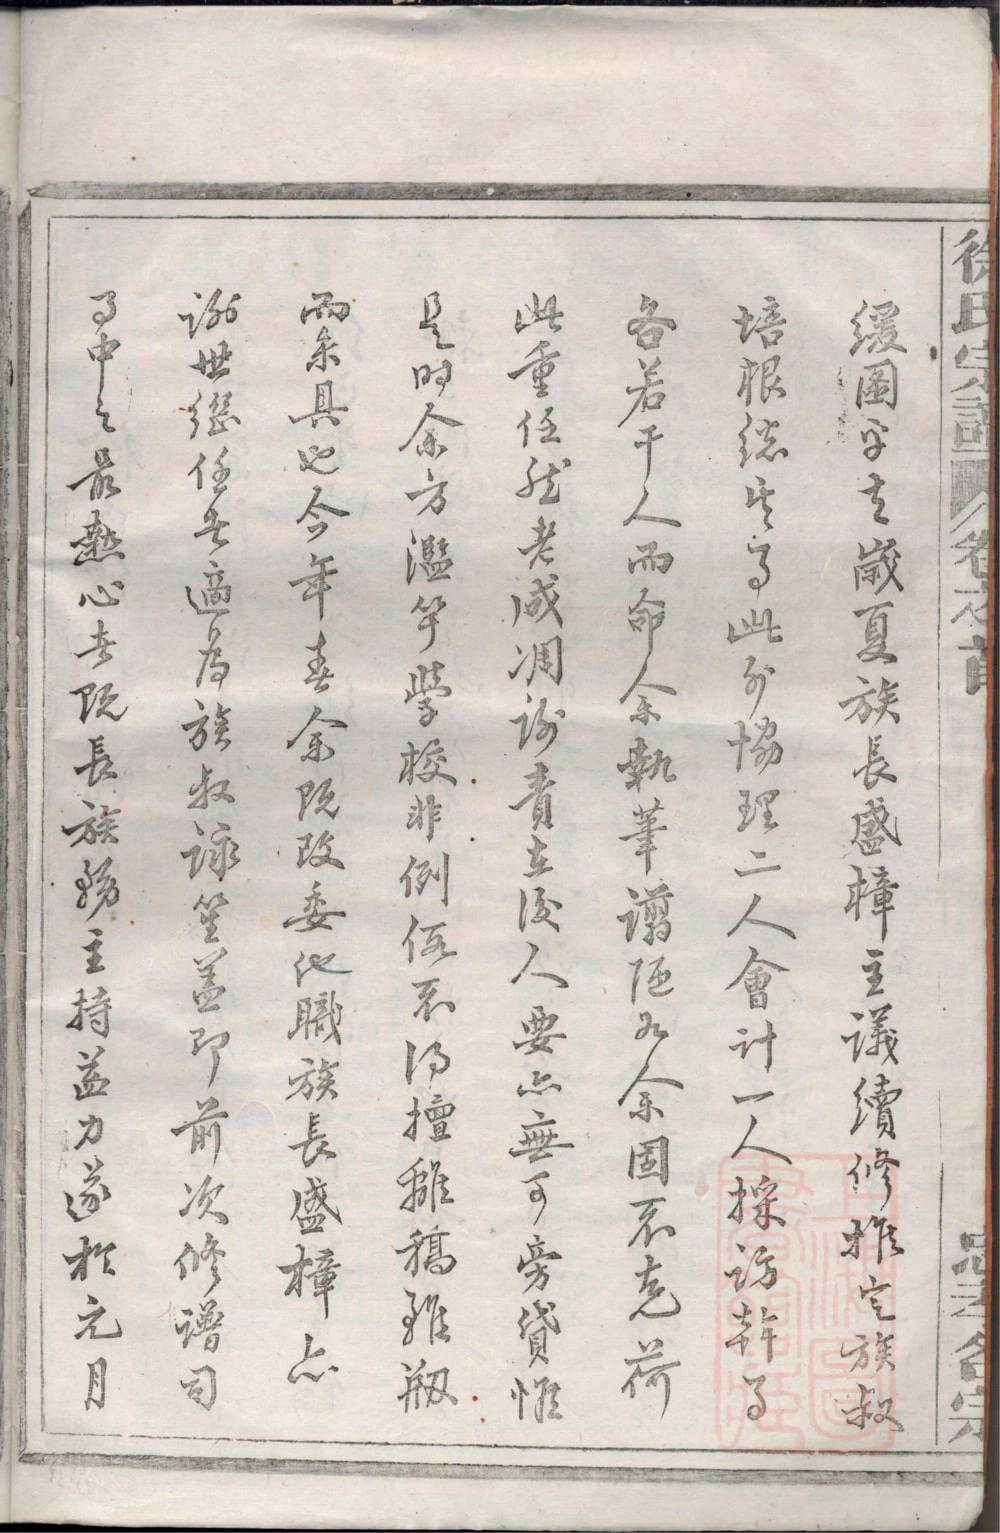 徐氏宗譜 卷之首
忠孝名宗
緩圖乎去歲夏族長盛樟主議續修推定族叔
培根總其事此外協理二人會計一人採訪幹事
各若干人而命余執筆譾陋如余固不克荷
此重任然老成凋謝責在後人要亦無可旁貸惟
是時余方濫竽學校非例假不得擅離稿雖剏
而未具也今年春余既改委他職族長盛樟亦
謝世繼任者適為族叔詠笙蓋即前次修譜司
事中之最熱心者既長族務主持益力遂於元月